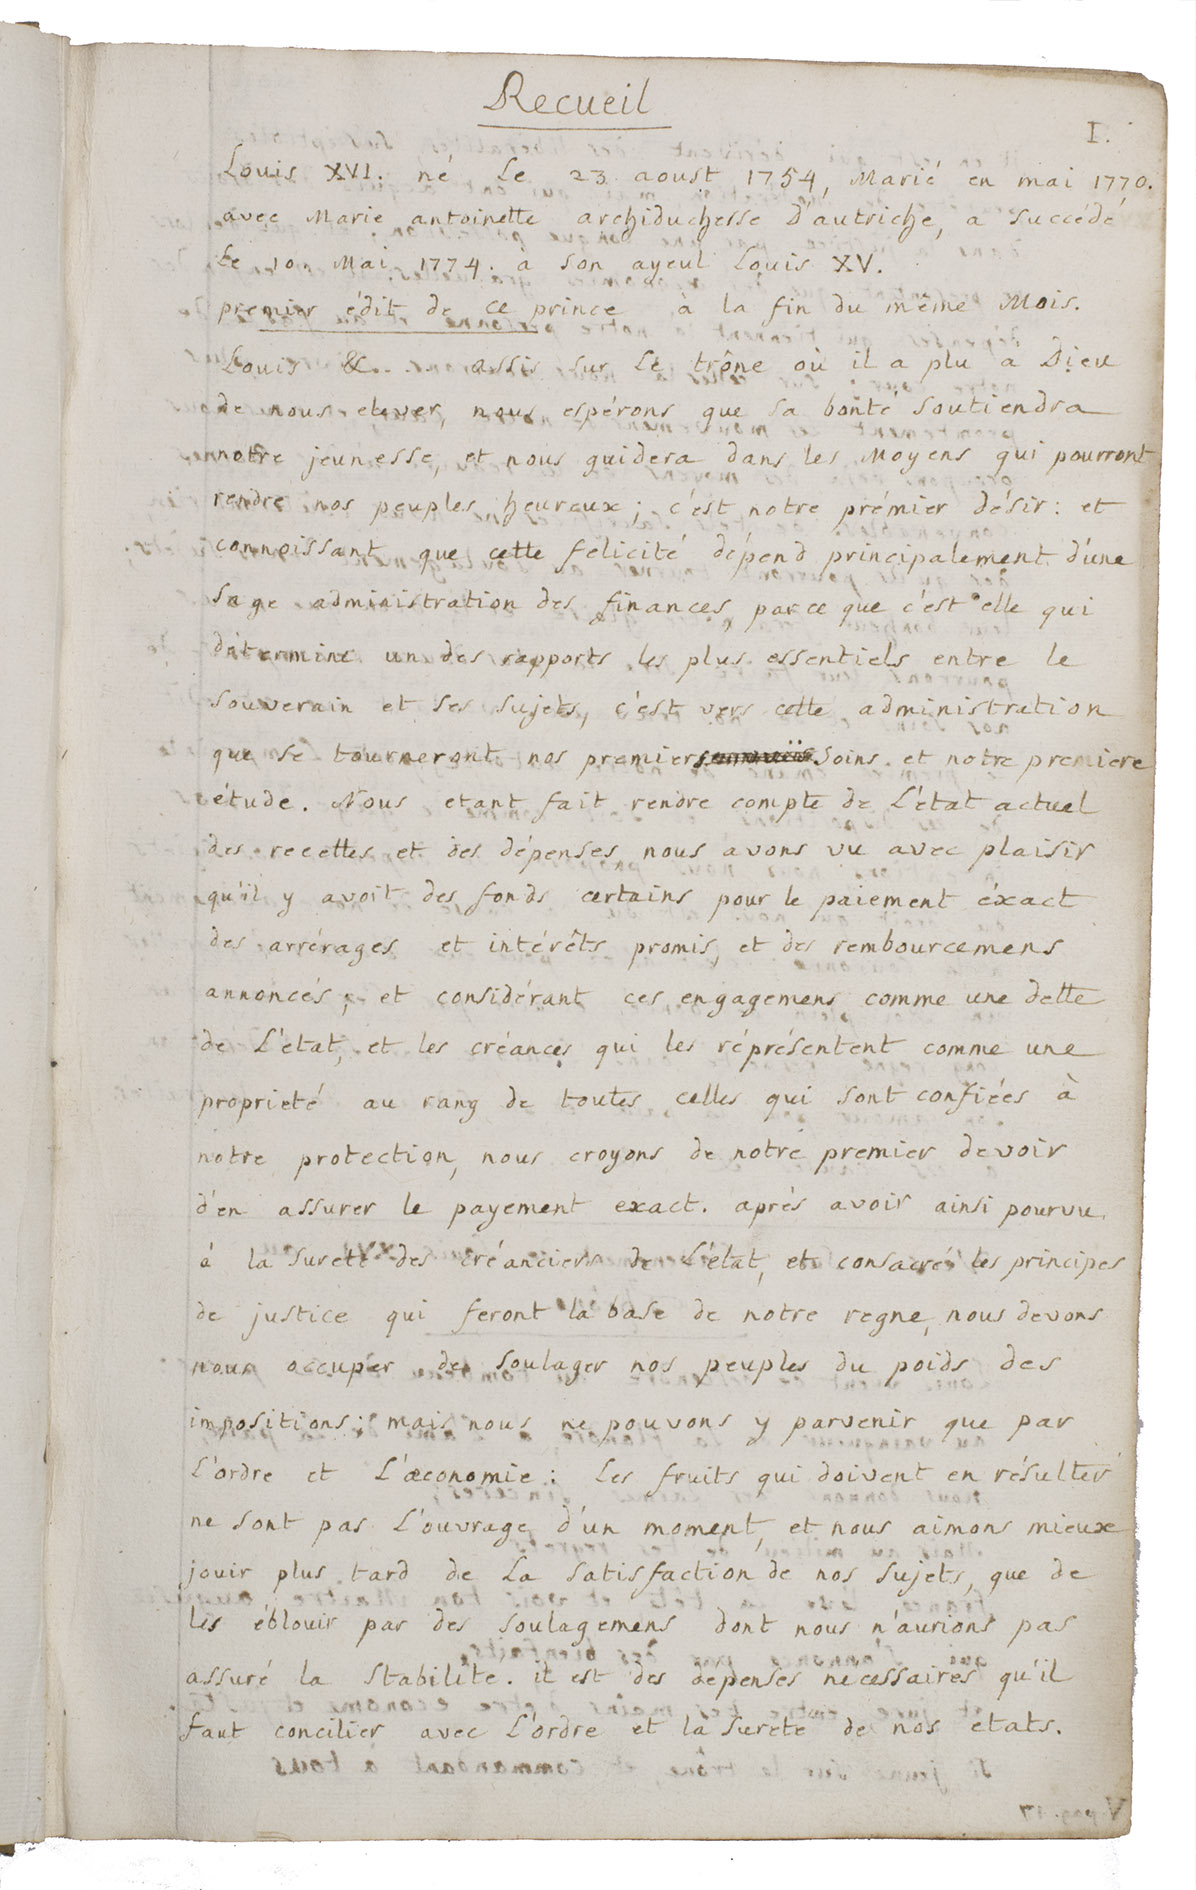 Recueil
I.
Louis XVI. né Le 23 aoust 1754, Marié en mai 1770.
avec Marie antoinette archiduchesse D'autriche, a succédé
Le 10 Mai 1774. à son ayeul Louis XV.
premier édit de ce prince à la fin du même Mois.
Louis &... assis sur Le trône où il a plu a Dieu
de nous elever, nous espérons que sa bonté soutiendra
notre jeunesse, et nous guidera dans les Moyens qui pourront
rendre nos peuples heureux; c'est notre prémier désir: et
connoissant que cette felicité dépend principalement d'une
Sage administration des finances, parce que c'est elle qui
détermine un des rapports les plus essentiels entre le
Souverain et ses sujets, c'est vers cette administration
que se tourneront nos premiers soins et notre premiere
étude. Nous etant fait rendre compte de L'état actuel
des recettes et des dépenses, nous avons vu avec plaisir
qu'il y avoit des fonds certains pour le paiement éxact
des arrérages et intérêts promis, et des rembourcemens
annoncés; et considérant ces engagemens comme une dette
de L'état, et les créances qui les répréesentent comme une
proprieté au rang de toutes celles qui sont confiées à
notre protection, nous croyons de notre premier devoir
d'en assurer le payement exact. aprés avoir ainsi pourvu
à la sureté des créanciers de L'état, et consacré les principes
de justice qui feront la base de notre regne, nous devons
nous occuper de soulager nos peuples du poids des
impositions; mais nous ne pouvons y parvenir que par
L'ordre et L'œconomie: Les fruits qui doivent en résulter
ne sont pas L'ouvrage d'un moment, et nous aimons mieux
jouir plus tard de La satisfaction de nos sujets, que de
les éblouir par des soulagemens dont nous n'aurions pas
assuré la stabilite. il est des depenses necessaires qu'il
faut concilier avec L'ordre et la sureté de nos etats.